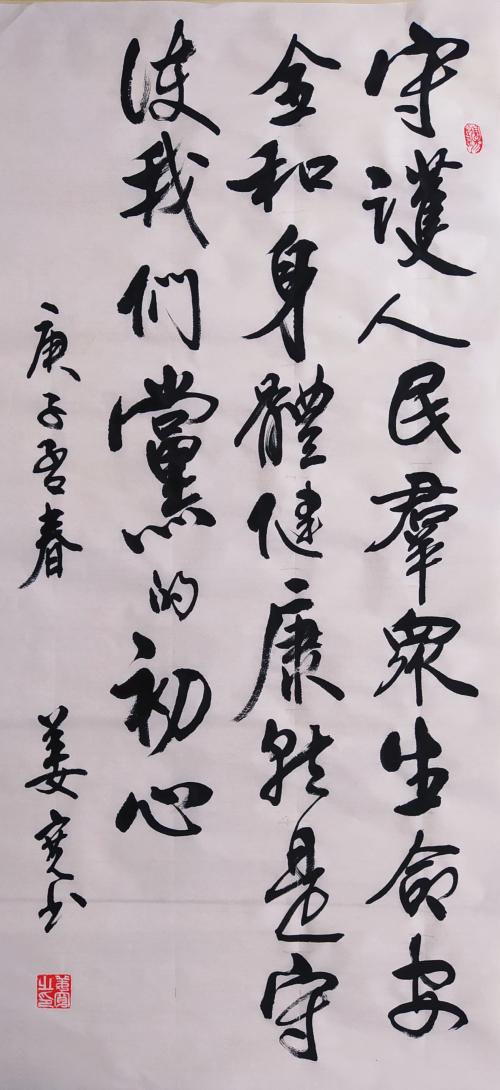 守護人民羣眾生命安
全和身體健康就是守
護我們黨的初心
庚子春 姜寬书
姜寬之印